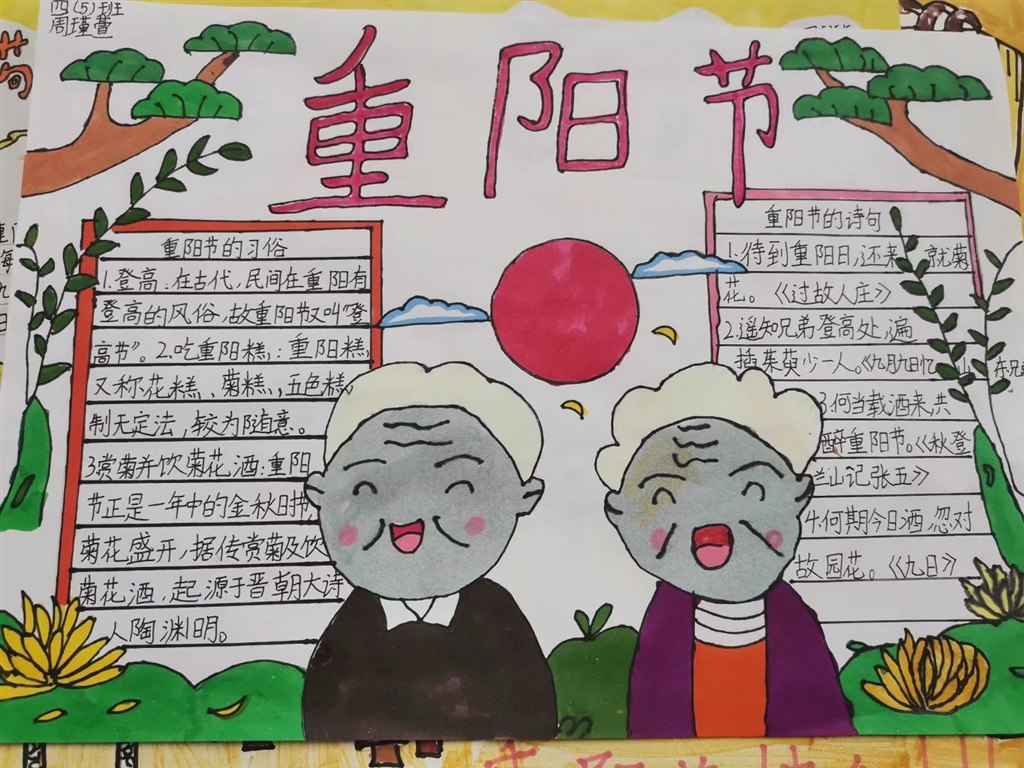 四(5)班
周瑾萱
重阳节
重阳节的习俗
1.登高:在古代,民间在重阳有
登高的风俗,故重阳节又叫"登
高节"。2.吃重阳糕:重阳糕,
又称花糕、菊糕、五色糕,
制无定法,较为随意。
3赏菊并饮菊花酒:重阳
节正是一年中的金秋时节
菊花盛开,据传赏菊及饮
菊花酒,起源于晋朝大诗
人陶渊明。
重阳节的诗句
1.待到重阳日,还来就菊
花。《过故人庄》
2.遥知兄弟登高处,遍
插茱萸少一人。《九月九日忆山东兄
3何当载酒来共
醉重阳节。《秋登
兰山记张五》
4何期今日酒忽对
故园花。《九日》